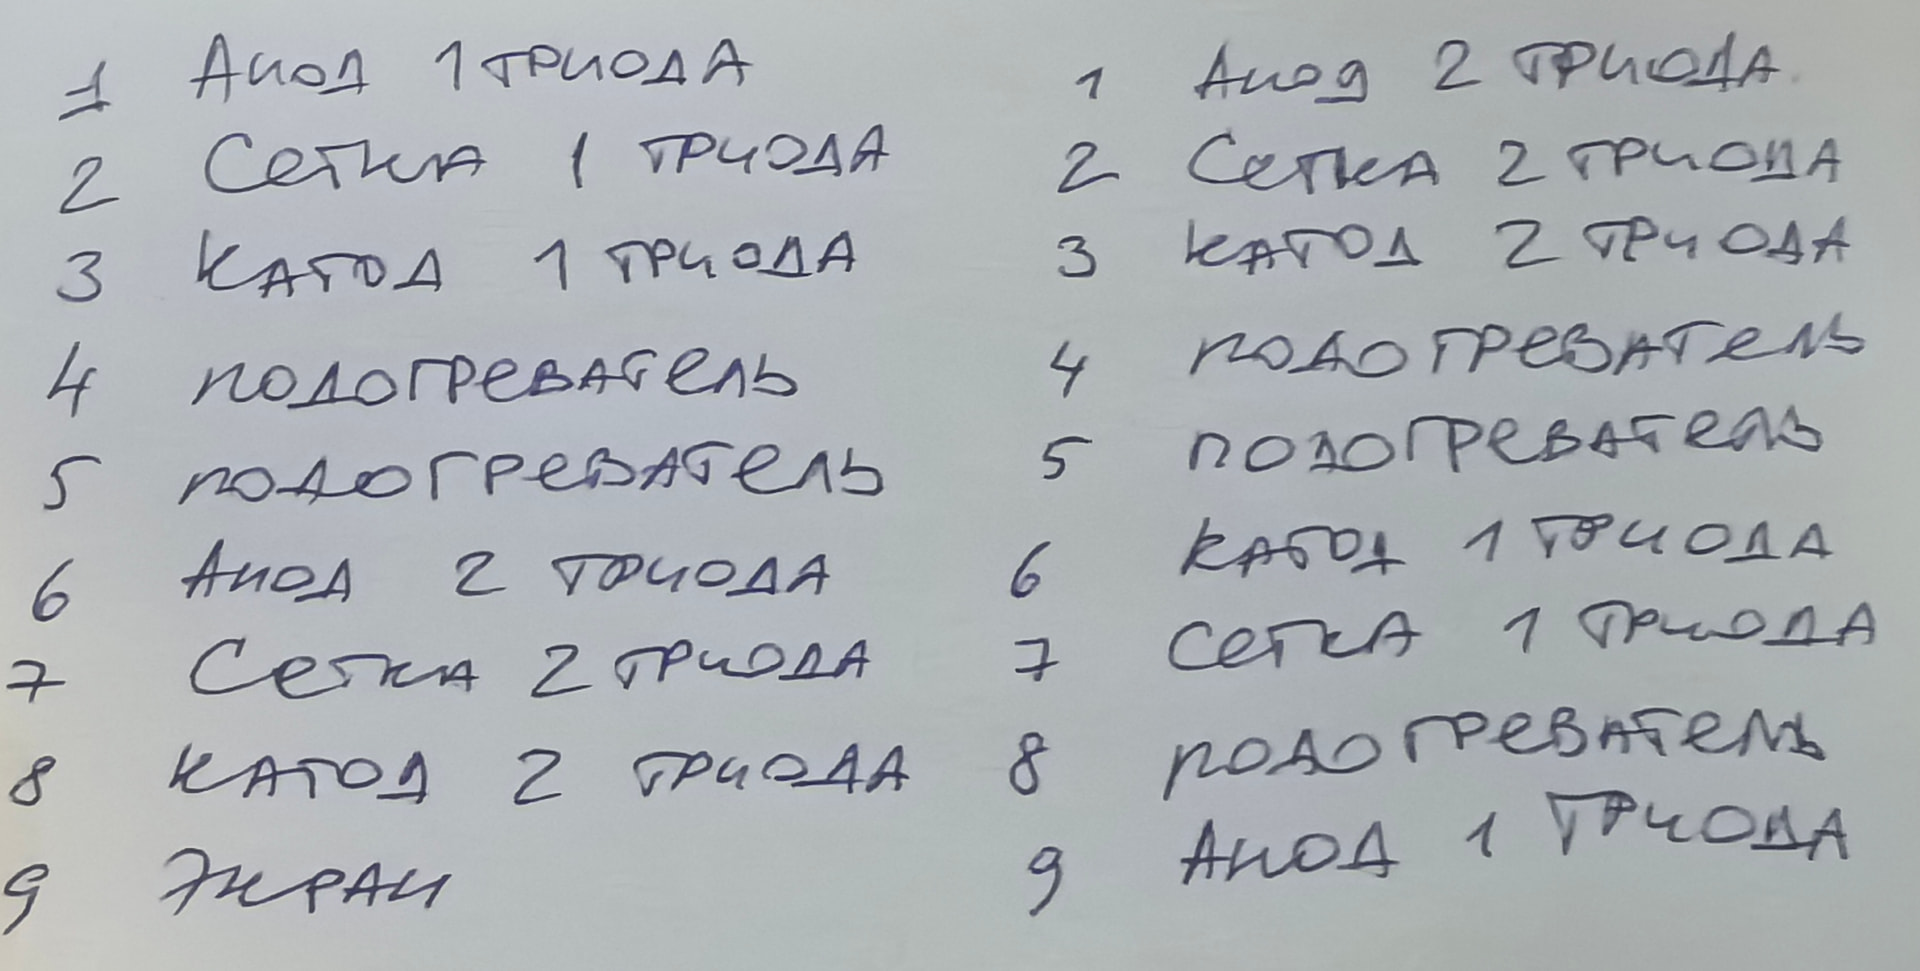 1 Анод 1 триода
2 Сетка 1 триода
3 Катод 1 триода
4 подогреватель
5 подогреватель
6 Анод 2 триода
7 Сетка 2 триода
8 Катод 2 триода
9 Экран
1 Анод 2 триода.
2 Сетка 2 триода
3 Катод 2 триода
4 подогреватель
5 подогреватель
6 Катод 1 триода
7 Сетка 1 триода
8 подогреватель
9 Анод 1 триода